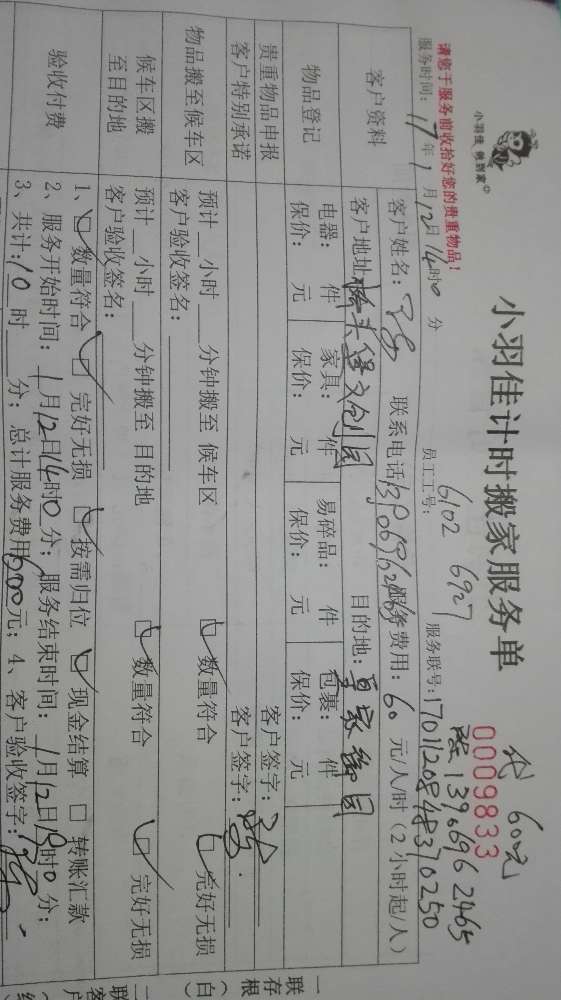 小羽佳 做到家
小羽佳计时搬家服务单
代 600元
0009833
请您于服务前收拾好您的贵重物品!
陈 13906962465
服务时间: 17 年 1 月 12日 14时0 分 员工工号: 6102 6927 服务联号: 17011208483 70250
客户资料
客户姓名: 联系电话 服务费用: 60 元/人/时 (2小时起/人)
客户地址: 桥头堡文创园 目的地: 皇家御园
物品登记
电器: 件 家具: 件 易碎品: 件 包裹: 件
保价: 元 保价: 元 保价: 元 保价: 元
贵重物品申报 客户签字:
客户特别承诺 客户签字:
物品搬至候车区
预计 小时 分钟搬至 候车区 数量符合 完好无损
客户验收签名:
候车区搬至目的地
预计 小时 分钟搬至 目的地 数量符合 完好无损
客户验收签名:
验收付费
1、 数量符合 完好无损 按需归位 现金结算 □ 转账汇款
2、服务开始时间: 1月12日14时0分; 服务结束时间: 1月12日19时0分;
3、共计: 10时 分; 总计服务费用600元; 4、客户验收签字:
一联存根(白)
二联客户